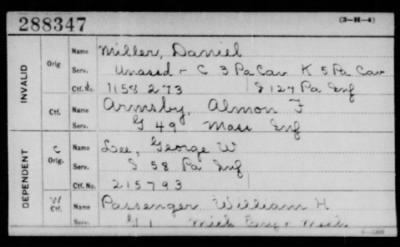 288347 (3-H-4)
INVALID
Orig. Name Miller, Daniel
Serv. Unassd - C 3 Pa Cav K 5 Pa Cav
Ctf. No. 1158273 127 Pa Inf
Ctf. Name Armsby, Almon F
Serv. G 49 Mass Inf
DEPENDENT
C Orig. Name Lee, George W
Serv. 58 Pa Inf
Ctf. No. 215793
W Ctf. Name Passenger William H
1 Mich